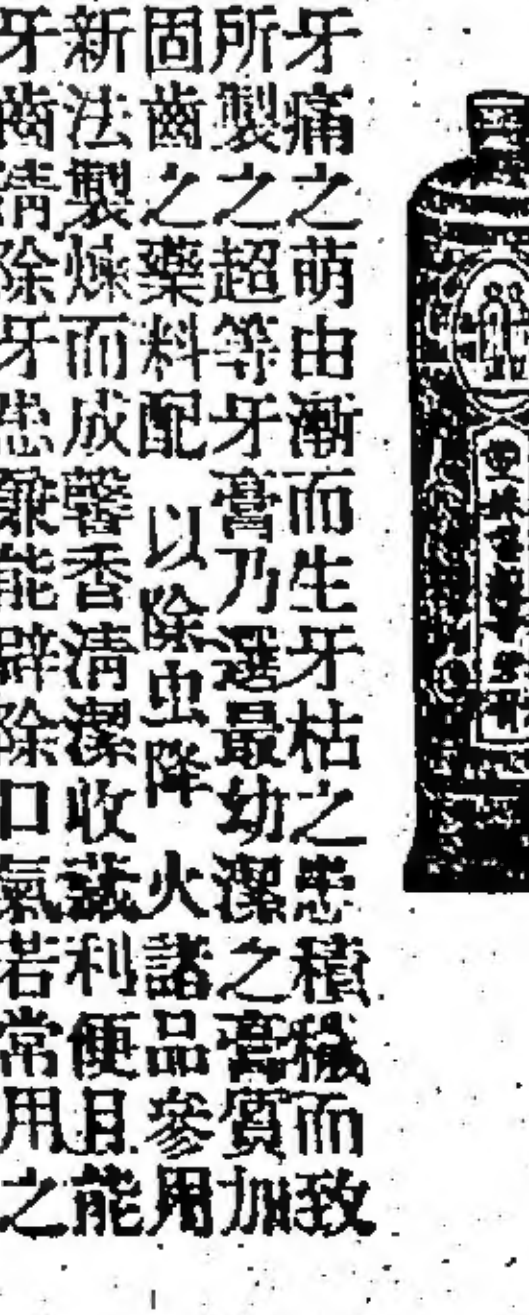 牙痛之萌由漸而生牙枯之患積穢而致
所製之超等牙膏乃選最幼潔之膏質加
固齒之藥料配以除虫降火諸品參用
新法製煉而成馨香清潔收藏利便且能
牙齒清除牙患兼能辟除口氣若常用之